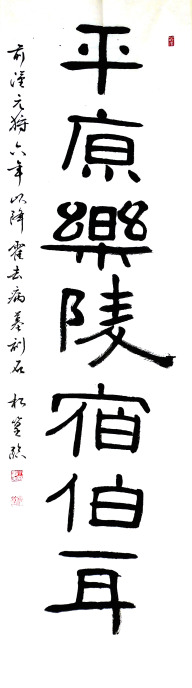 平原樂陵宿伯耳
前漢元狩六年以降 霍去病墓刻石